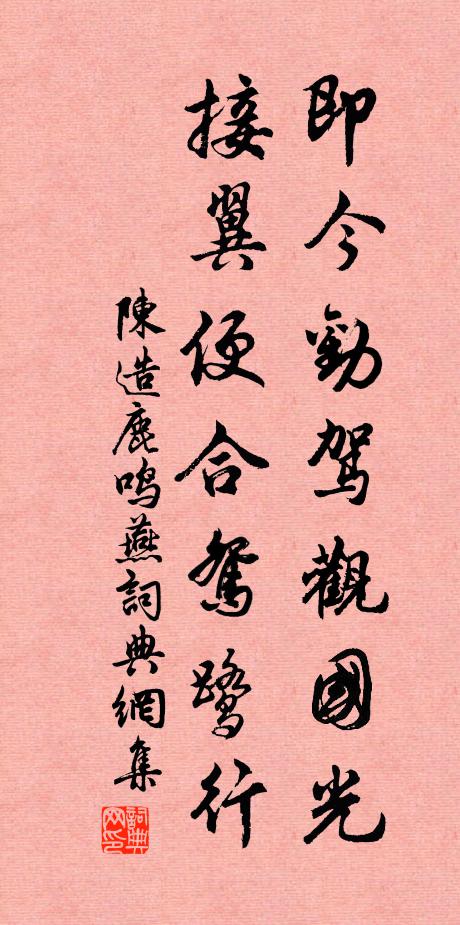 即今勸駕觀國光
接翼便合鴛鷺行
陳造鹿鳴燕詞典網集
詞典网印